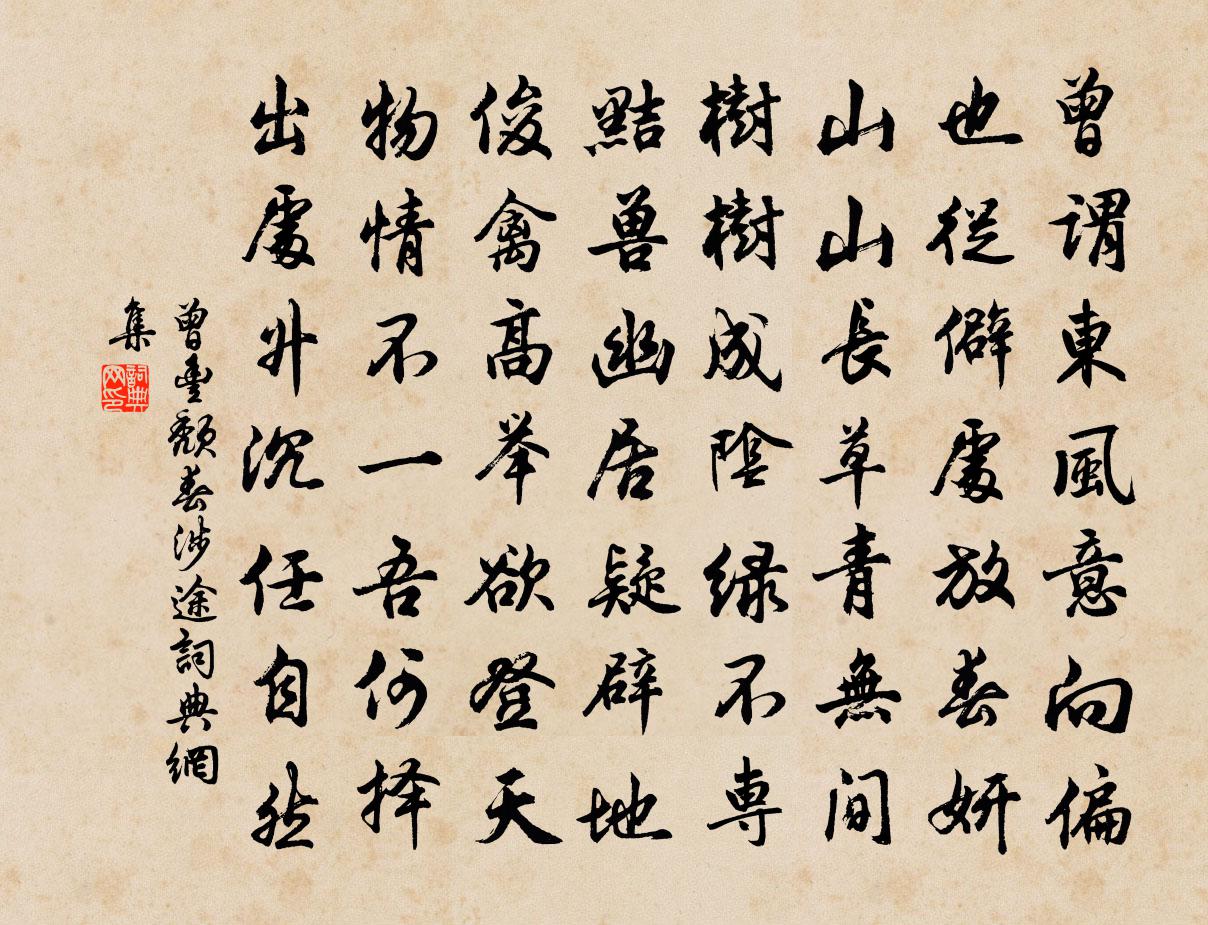 曾謂東風意向偏
也從僻處放春妍
山山長草青無間
樹樹成陰绿不専
黠兽幽居疑辟地
俊禽高举欲登天
物情不一吾何择
出處升沉任自然
曾豊颓春涉途詞典網
集
詞典
网印